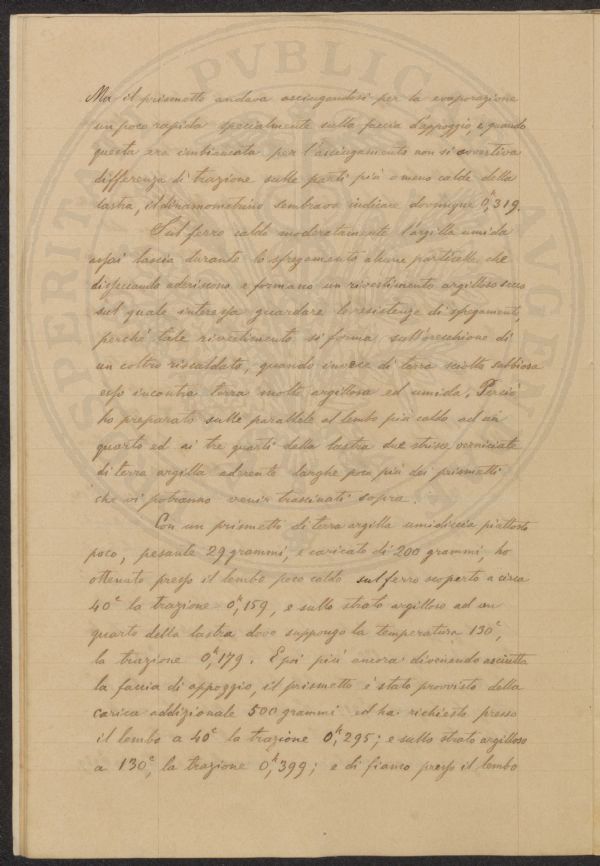 Ma il prismotto andava asciugandosi per la evaporazione
un poco rapida specialmente sulla faccia d'appoggio, e quando
questa era imbiancata per l'asciugamento non si avvertiva
differenza di trazione sulle parti più o meno calde della
lastra, il dinamometrino sembrava indicare dovunque 0,ᵏ319.
Sul ferro caldo moderatamente l'argilla umida
assai lascia durante lo sfregamento alcune particelle che
disseccando aderiscono e formano un rivestimento argilloso secco
sul quale interessa guardare le resistenze di sfregamenti,
perchè tale rivestimento si forma sull'orecchione di
un coltro riscaldato, quando invece di terra sciolta sabbiosa
esso incontra terra molto argillosa ed umida. Perciò
ho preparato sulle parallele al lembo più caldo ad un
quarto ed ai tre quarti della lastra due striscie verniciate
di terra argilla aderente larghe poco più dei prismetti
che vi potranno venir trascinati sopra.
Con un prismetto di terra argilla umidiccia piuttosto
poco, pesante 29 grammi, e caricato di 200 grammi, ho
ottenuto presso il lembo poco caldo sul ferro scoperto a circa
40° la trazione 0,ᵏ159, e sullo strato argilloso ad un
quarto della lastra dove suppongo la temperatura 130°,
la trazione 0,ᵏ179. E poi più ancora divenendo asciutta
la faccia di appoggio, il prismetto è stato provvisto della
carica addizionale 500 grammi ed ha richiesto presso
il lembo a 40° la trazione 0,ᵏ295; e sullo strato argilloso
a 130°, la trazione 0,ᵏ399; e di fianco presso il lembo
PVBLIC
AVGEN
SPERITA